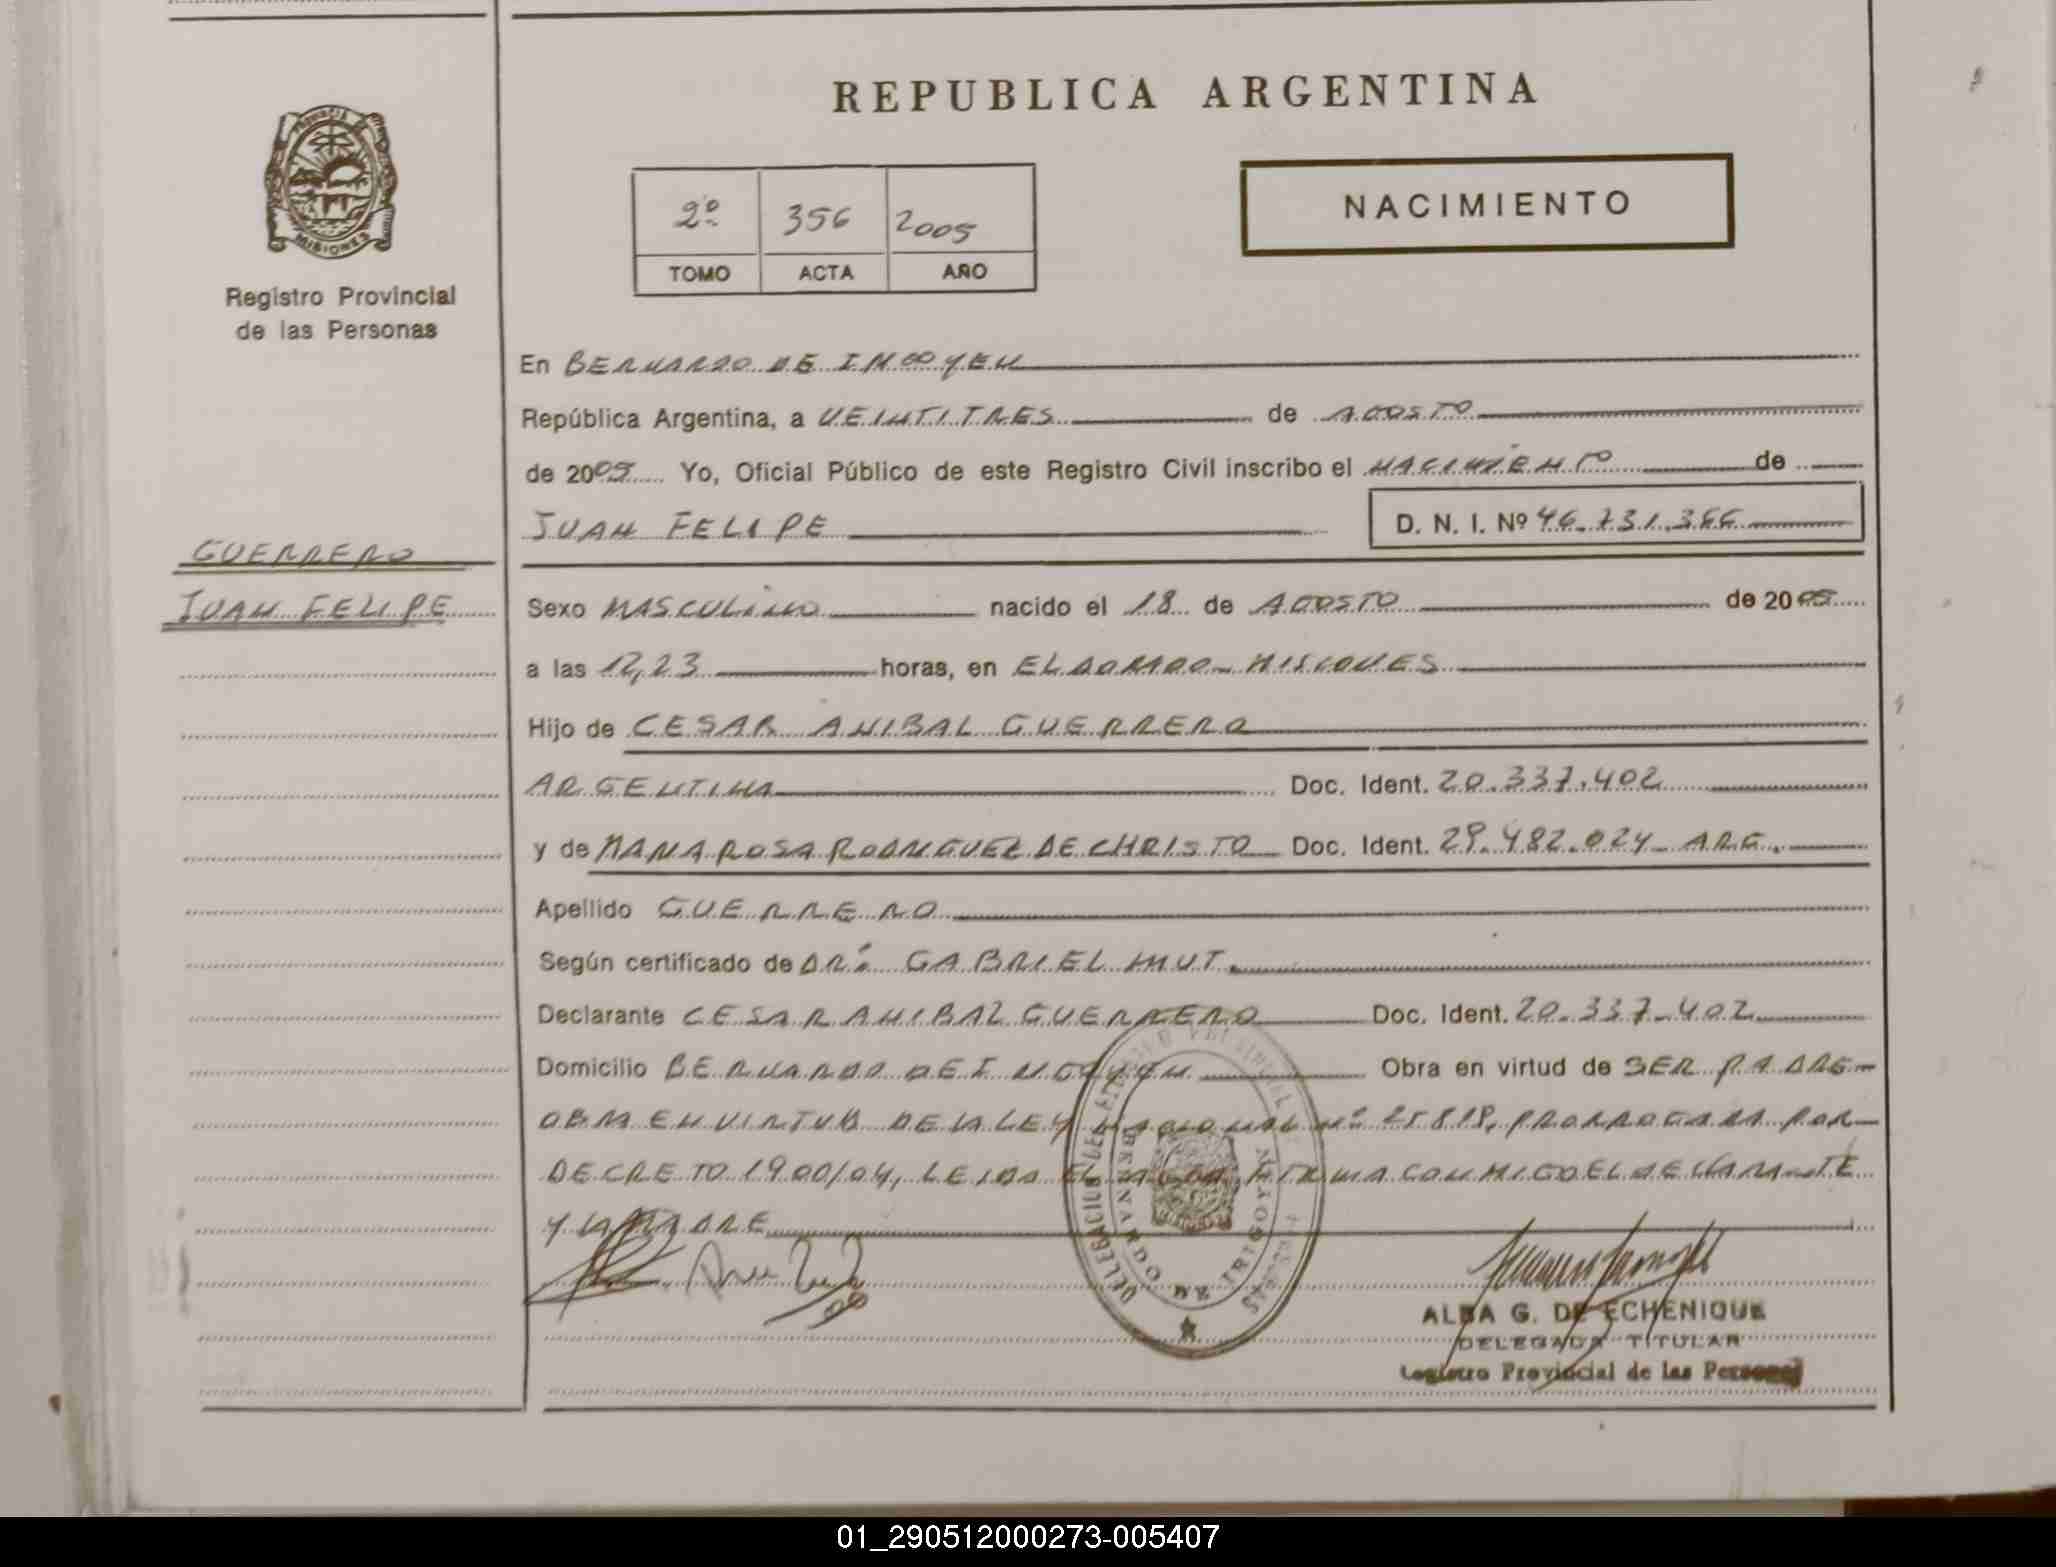 REPUBLICA ARGENTINA
PROVINCIA DE
MISIONES
Registro Provincial
de las Personas
2º 356 2005
TOMO ACTA AÑO
NACIMIENTO
En BERNARDO DE IRIGOYEN
República Argentina, a VEINTITRES de AGOSTO
de 2005 Yo, Oficial Público de este Registro Civil inscribo el NACIMIENTO de
JUAN FELIPE D. N. I. Nº 46.731.366
GUERRERO
JUAN FELIPE
Sexo MASCULINO nacido el 18 de AGOSTO de 2005
a las 12,23 horas, en ELDORADO-MISIONES
Hijo de CESAR ANIBAL GUERRERO
ARGENTINA Doc. Ident. 20.337.402
y de MARIA ROSA RODRIGUEZ DE CHRISTO Doc. Ident. 29.482.024- ARG.
Apellido GUERRERO
Según certificado de DR: GABRIEL MUT.
Declarante CESAR ANIBAL GUERRERO Doc. Ident. 20.337.402
Domicilio BERNARDO DE IRIGOYEN Obra en virtud de SER PADRE-
OBRA EN VIRTUD DE LA LEY NACIONAL Nº 25818, PRORROGADA POR
DECRETO 1900/04, LEIDA EL ACTA, FIRMA CONMIGO EL DECLARANTE
Y LA MADRE
BERNARDO DE IRIGOYEN
ALBA G. DE ECHENIQUE
DELEGADA TITULAR
Registro Provincial de las Personas
01_290512000273-005407